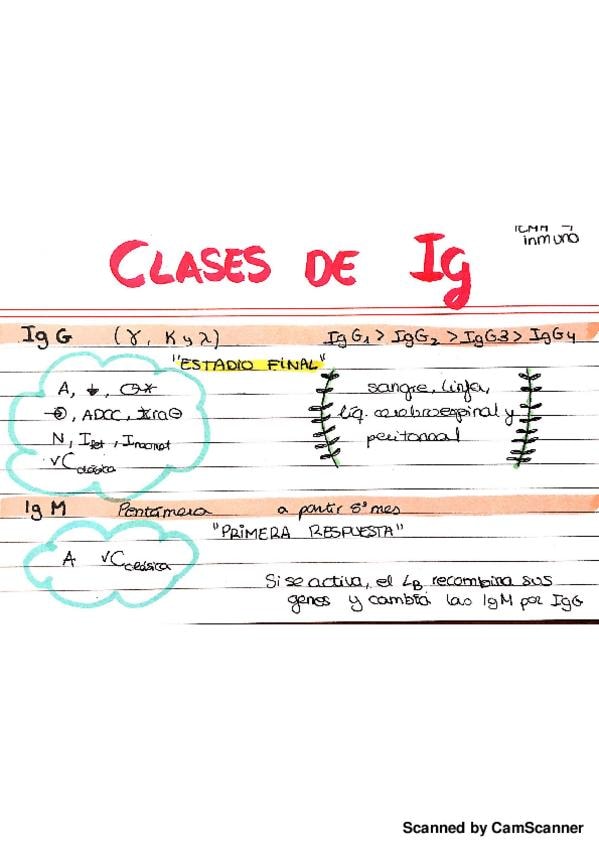 inmuno
CLASES DE Ig
Ig G (γ, K y λ) IgG1 > IgG2 > IgG3 > IgG4
"ESTADIO FINAL"
A,
sangre, linfa,
, ADCC,
líq. cerebroespinal y
N, I fet, I
peritoneal
√C clásica
Ig M Pentámera a partir 5º mes
"PRIMERA RESPUESTA"
A √C clásica
Si se activa, el LB recombina sus
genes y cambia las IgM por IgG
Scanned by CamScanner